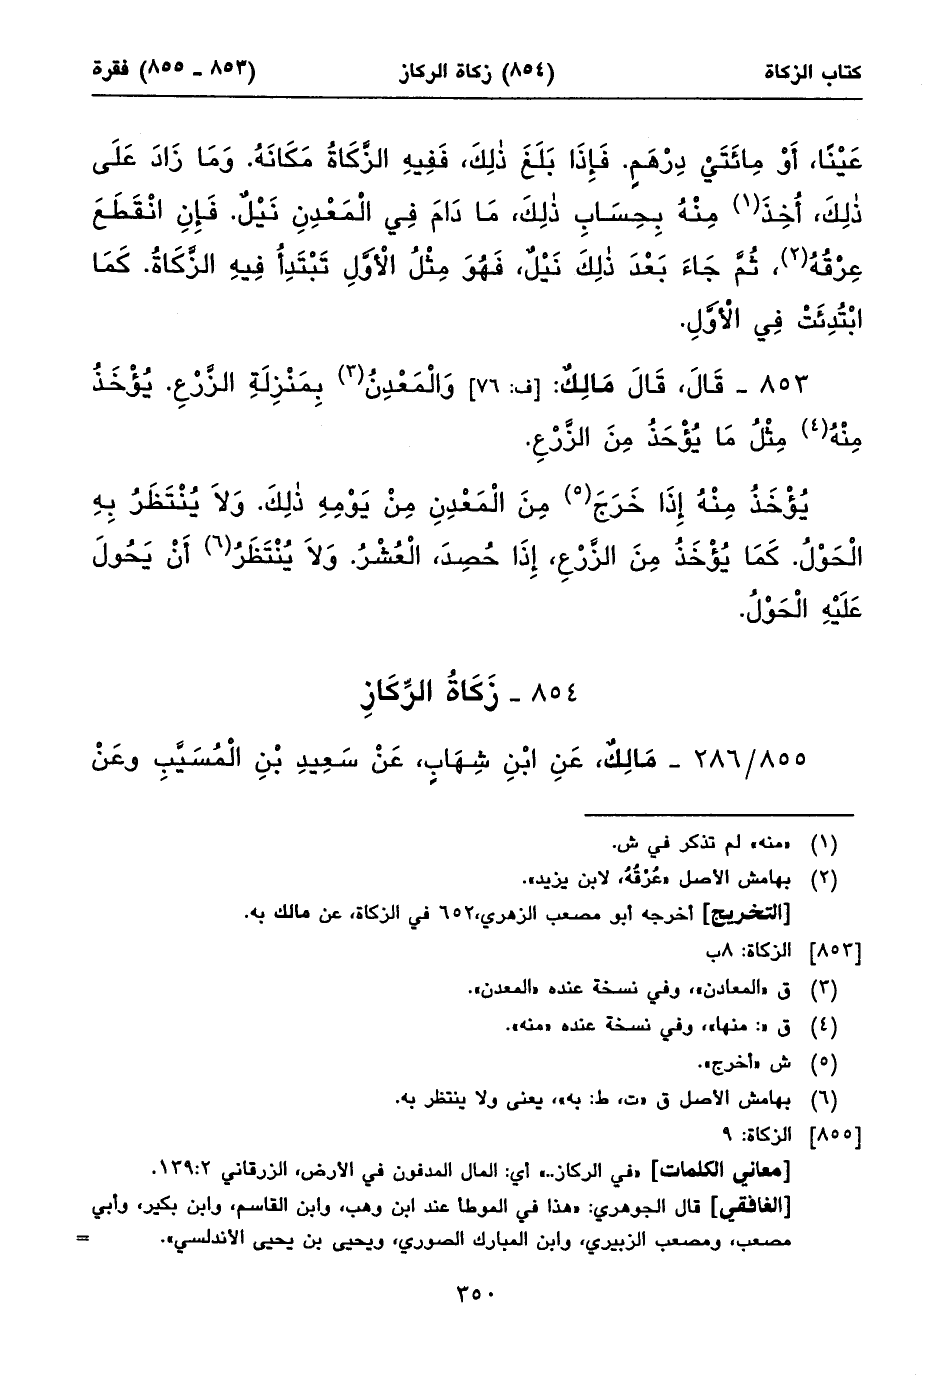 كتاب الزكاة (٨٥٤) زكاة الركاز (٨٥٣ - ٨٥٥) فقرة
عَيْنًا، أَوْ مِائَتَيْ دِرْهَمٍ. فَإِذَا بَلَغَ ذٰلِكَ، فَفِيهِ الزَّكَاةُ مَكَانَهُ. وَمَا زَادَ عَلَى
ذٰلِكَ، أُخِذَ(١) مِنْهُ بِحِسَابِ ذٰلِكَ، مَا دَامَ فِي الْمَعْدِنِ نَيْلٌ. فَإِنِ انْقَطَعَ
عِرْقُهُ(٢)، ثُمَّ جَاءَ بَعْدَ ذٰلِكَ نَيْلٌ، فَهُوَ مِثْلُ الْأَوَّلِ تَبْتَدِأُ فِيهِ الزَّكَاةُ. كَمَا
ابْتُدِئَتْ فِي الْأَوَّلِ.
٨٥٣ - قَالَ، قَالَ مَالِكٌ: [ف: ٧٦] وَالْمَعْدِنُ(٣) بِمَنْزِلَةِ الزَّرْعِ. يُؤْخَذُ
مِنْهُ(٤) مِثْلُ مَا يُؤْخَذُ مِنَ الزَّرْعِ.
يُؤْخَذُ مِنْهُ إِذَا خَرَجَ(٥) مِنَ الْمَعْدِنِ مِنْ يَوْمِهِ ذٰلِكَ. وَلاَ يُنْتَظَرُ بِهِ
الْحَوْلُ. كَمَا يُؤْخَذُ مِنَ الزَّرْعِ، إِذَا حُصِدَ، الْعُشْرُ. وَلاَ يُنْتَظَرُ(٦) أَنْ يَحُولَ
عَلَيْهِ الْحَوْلُ.
٨٥٤ - زَكَاةُ الرِّكَازِ
٢٨٦/٨٥٥ - مَالِكٌ، عَنِ ابْنِ شِهَابٍ، عَنْ سَعِيدِ بْنِ الْمُسَيَّبِ وعَنْ
(١) «منه» لم تذكر في ش.
(٢) بهامش الأصل «عُرْقُهُ، لابن يزيد».
[التخريج] أخرجه أبو مصعب الزهري،٦٥٢ في الزكاة، عن مالك به.
[٨٥٣] الزكاة: ٨ب
(٣) ق «المعادن»، وفي نسخة عنده «المعدن».
(٤) ق «: منها»، وفي نسخة عنده «منه».
(٥) ش «أخرج».
(٦) بهامش الأصل ق «ت، ط: به»، يعنى ولا ينتظر به.
[٨٥٥] الزكاة: ٩
[معاني الكلمات] «في الركاز..» أي: المال المدفون في الأرض، الزرقاني ١٣٩:٢.
[الغافقي] قال الجوهري: «هذا في الموطأ عند ابن وهب، وابن القاسم، وابن بكير، وأبي
مصعب، ومصعب الزبيري، وابن المبارك الصوري، ويحيى بن يحيى الأندلسي». =
٣٥٠